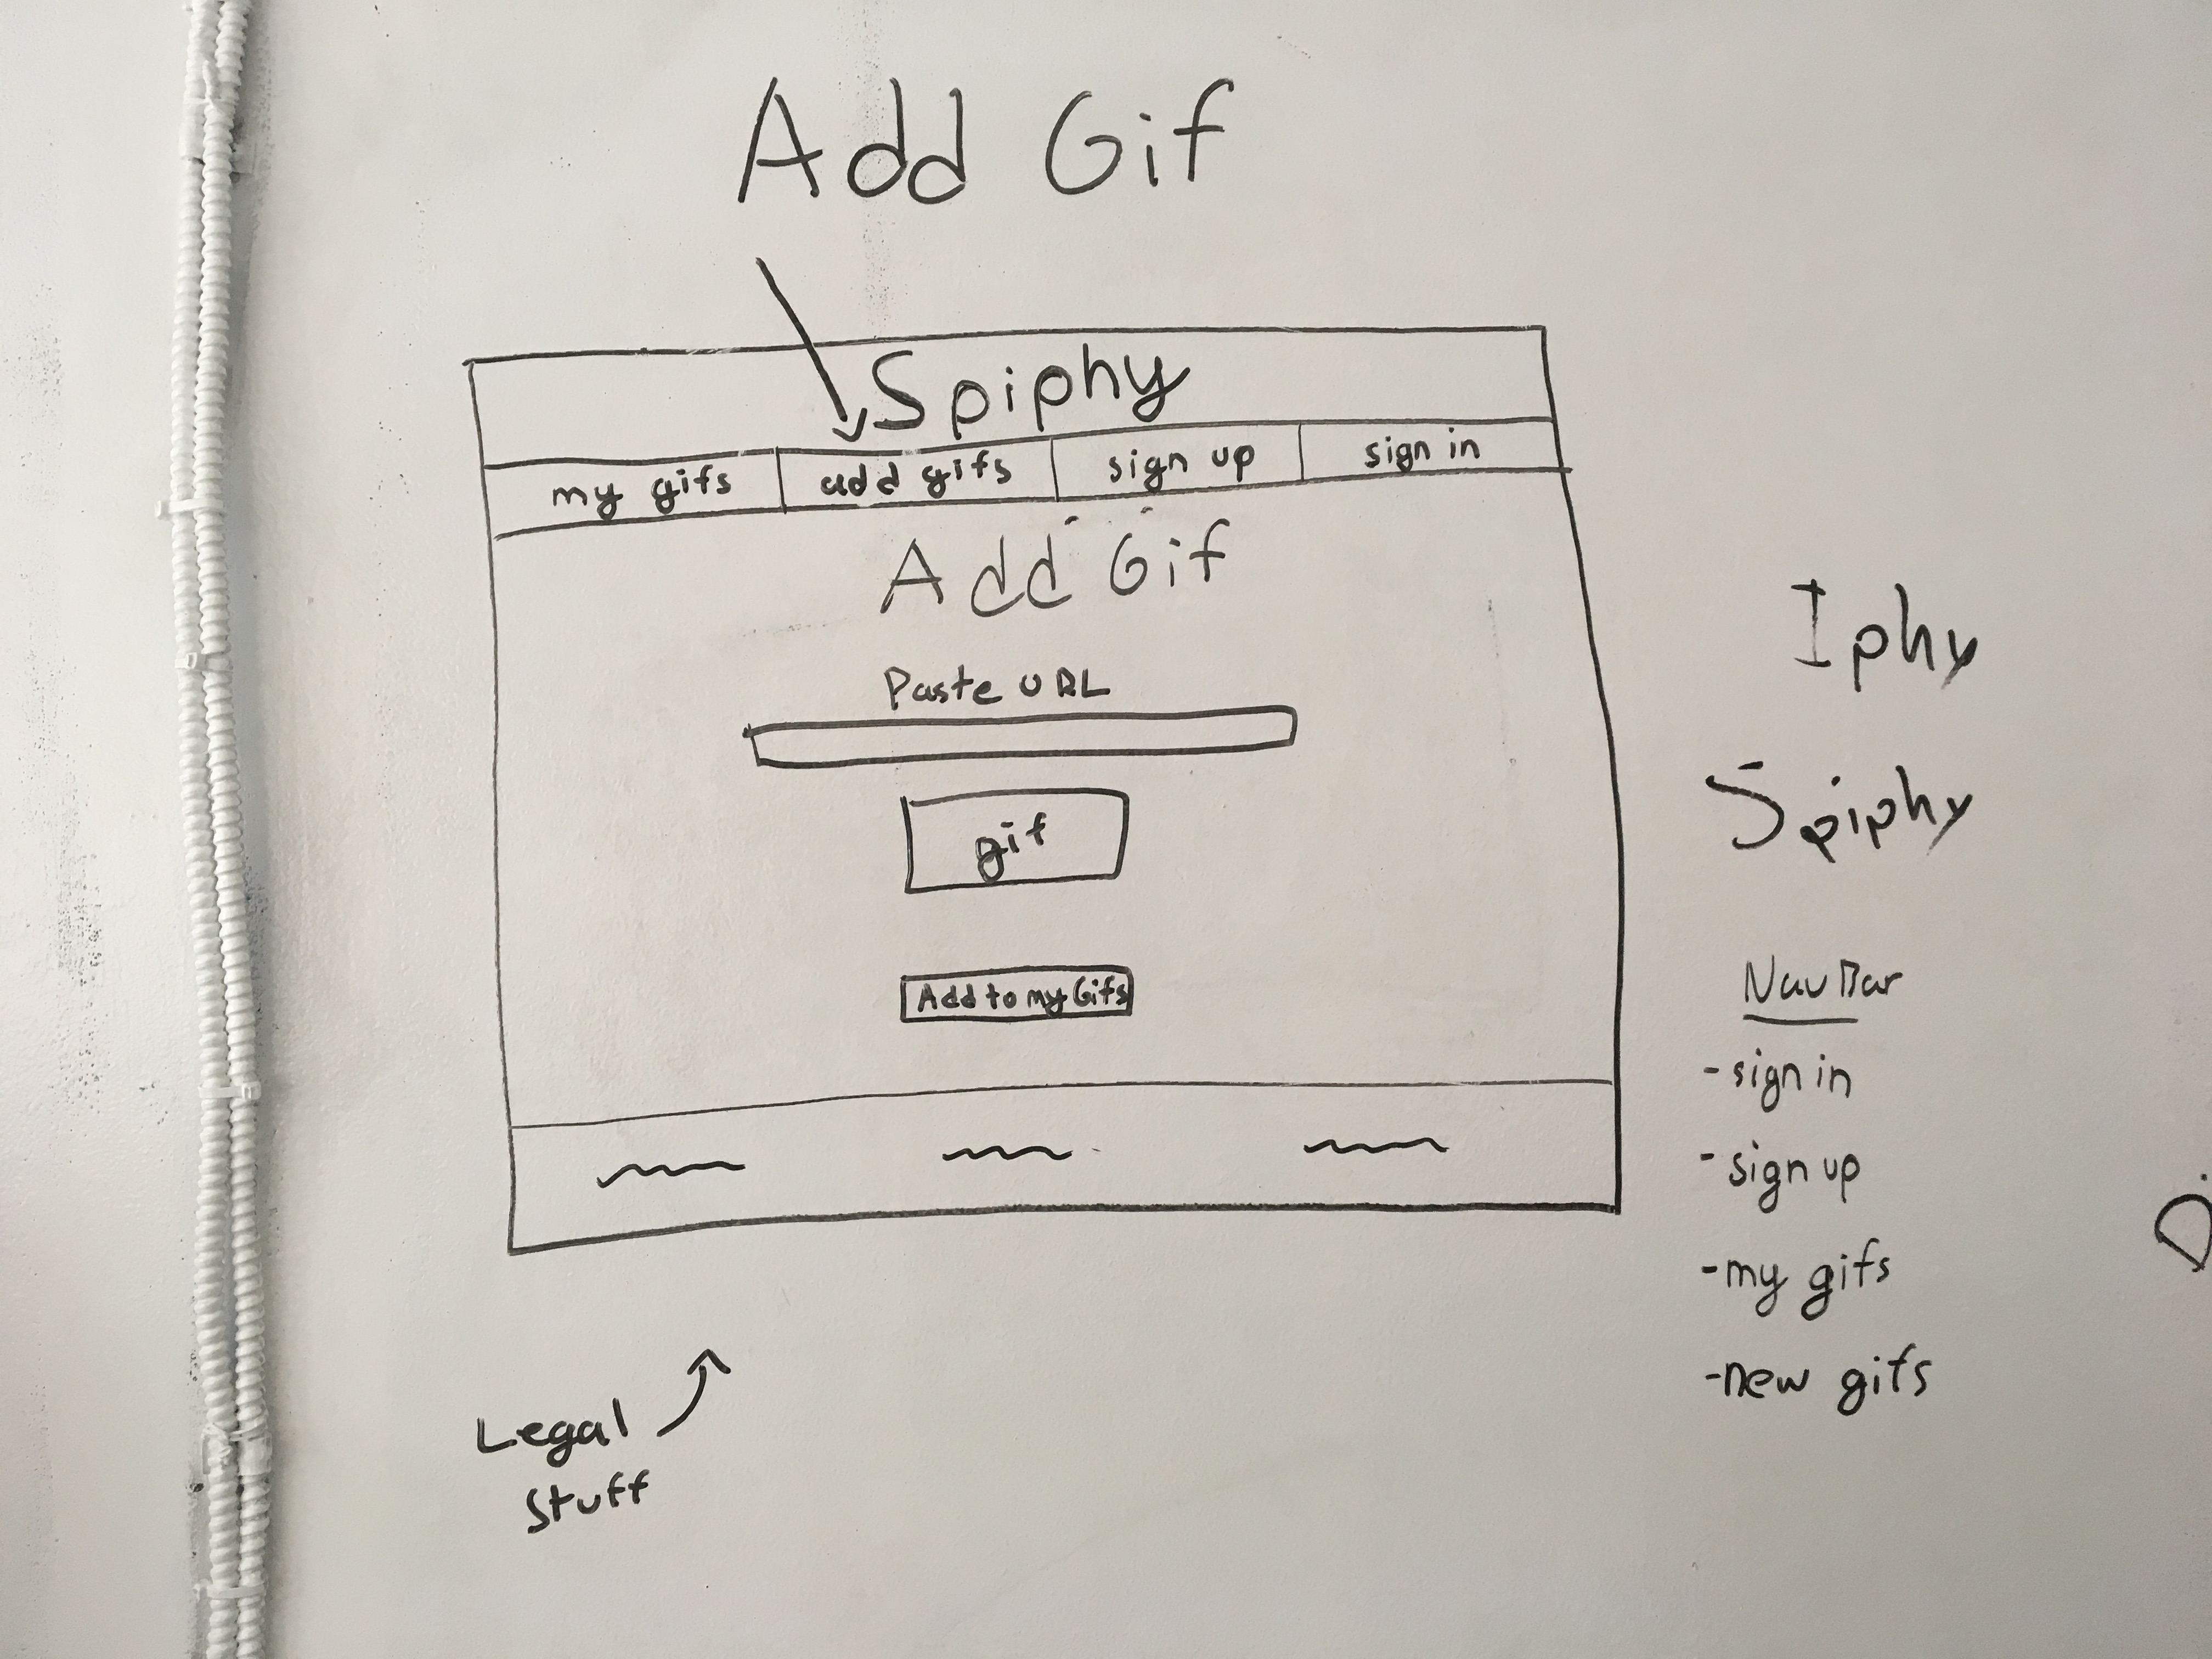 Add Gif
Spiphy
my gifs
add gifs
sign up
sign in
Add Gif
Paste URL
gif
Add to my Gifs
Legal
Stuff
Iphy
Spiphy
NavBar
- sign in
- sign up
- my gifs
- new gifs